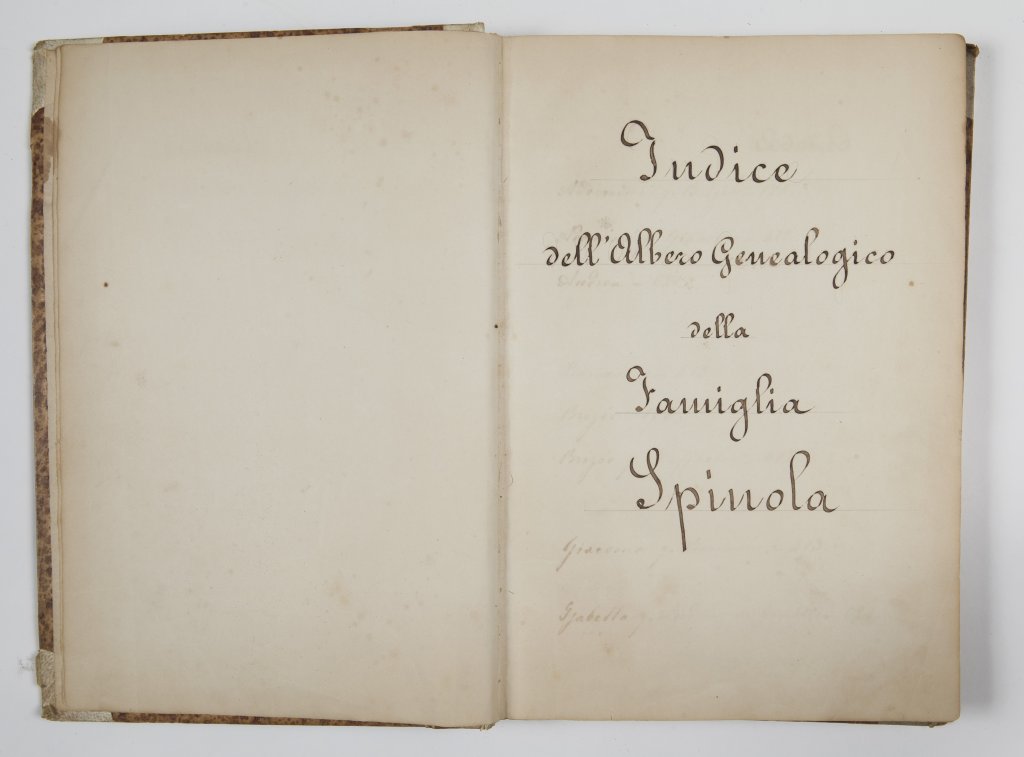 Indice
dell'Albero Genealogico
della
Famiglia
Spinola